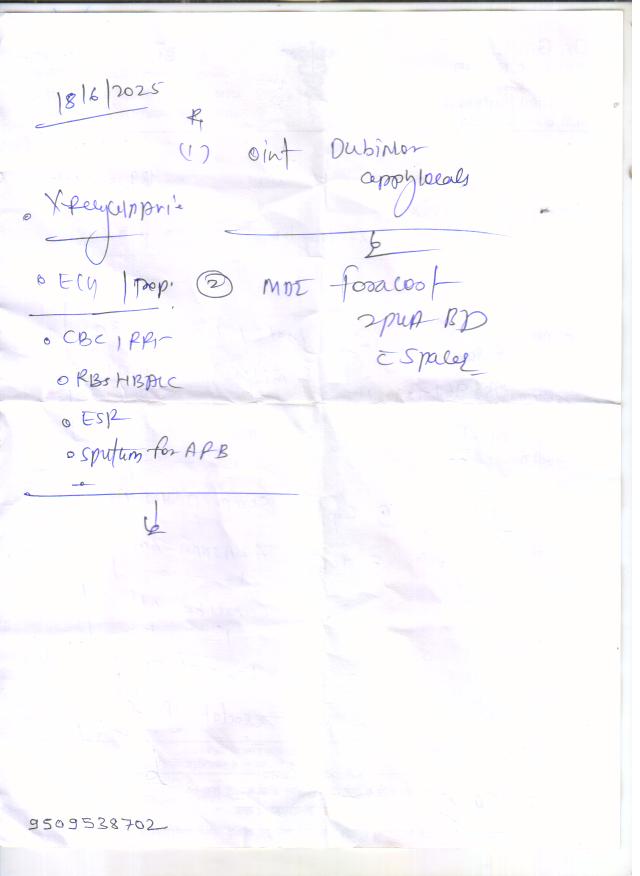 18/6/2025
R
(1) oint Dubinor
apply locals
X Ray
ECG / Trop.
(2) MDI foracort
2 puff BD
c̄ Spacer
CBC, RFT
RBS HBA1C
ESR
Sputum for AFB
9509538702